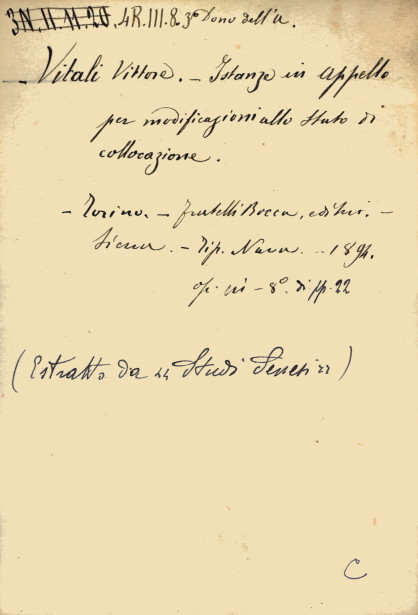 3N.II.11.20. 4R.III.8.3° Dono dell'a.
– Vitali Vittore. – Istanze in appello
per modificazioni allo stato di
collocazione.
– Torino. – Fratelli Bocca, editori. –
Siena. – Tip. Nava. – 1894.
op. in – 8°. di pp. 22
(Estratto da "Studi Senesi")
C